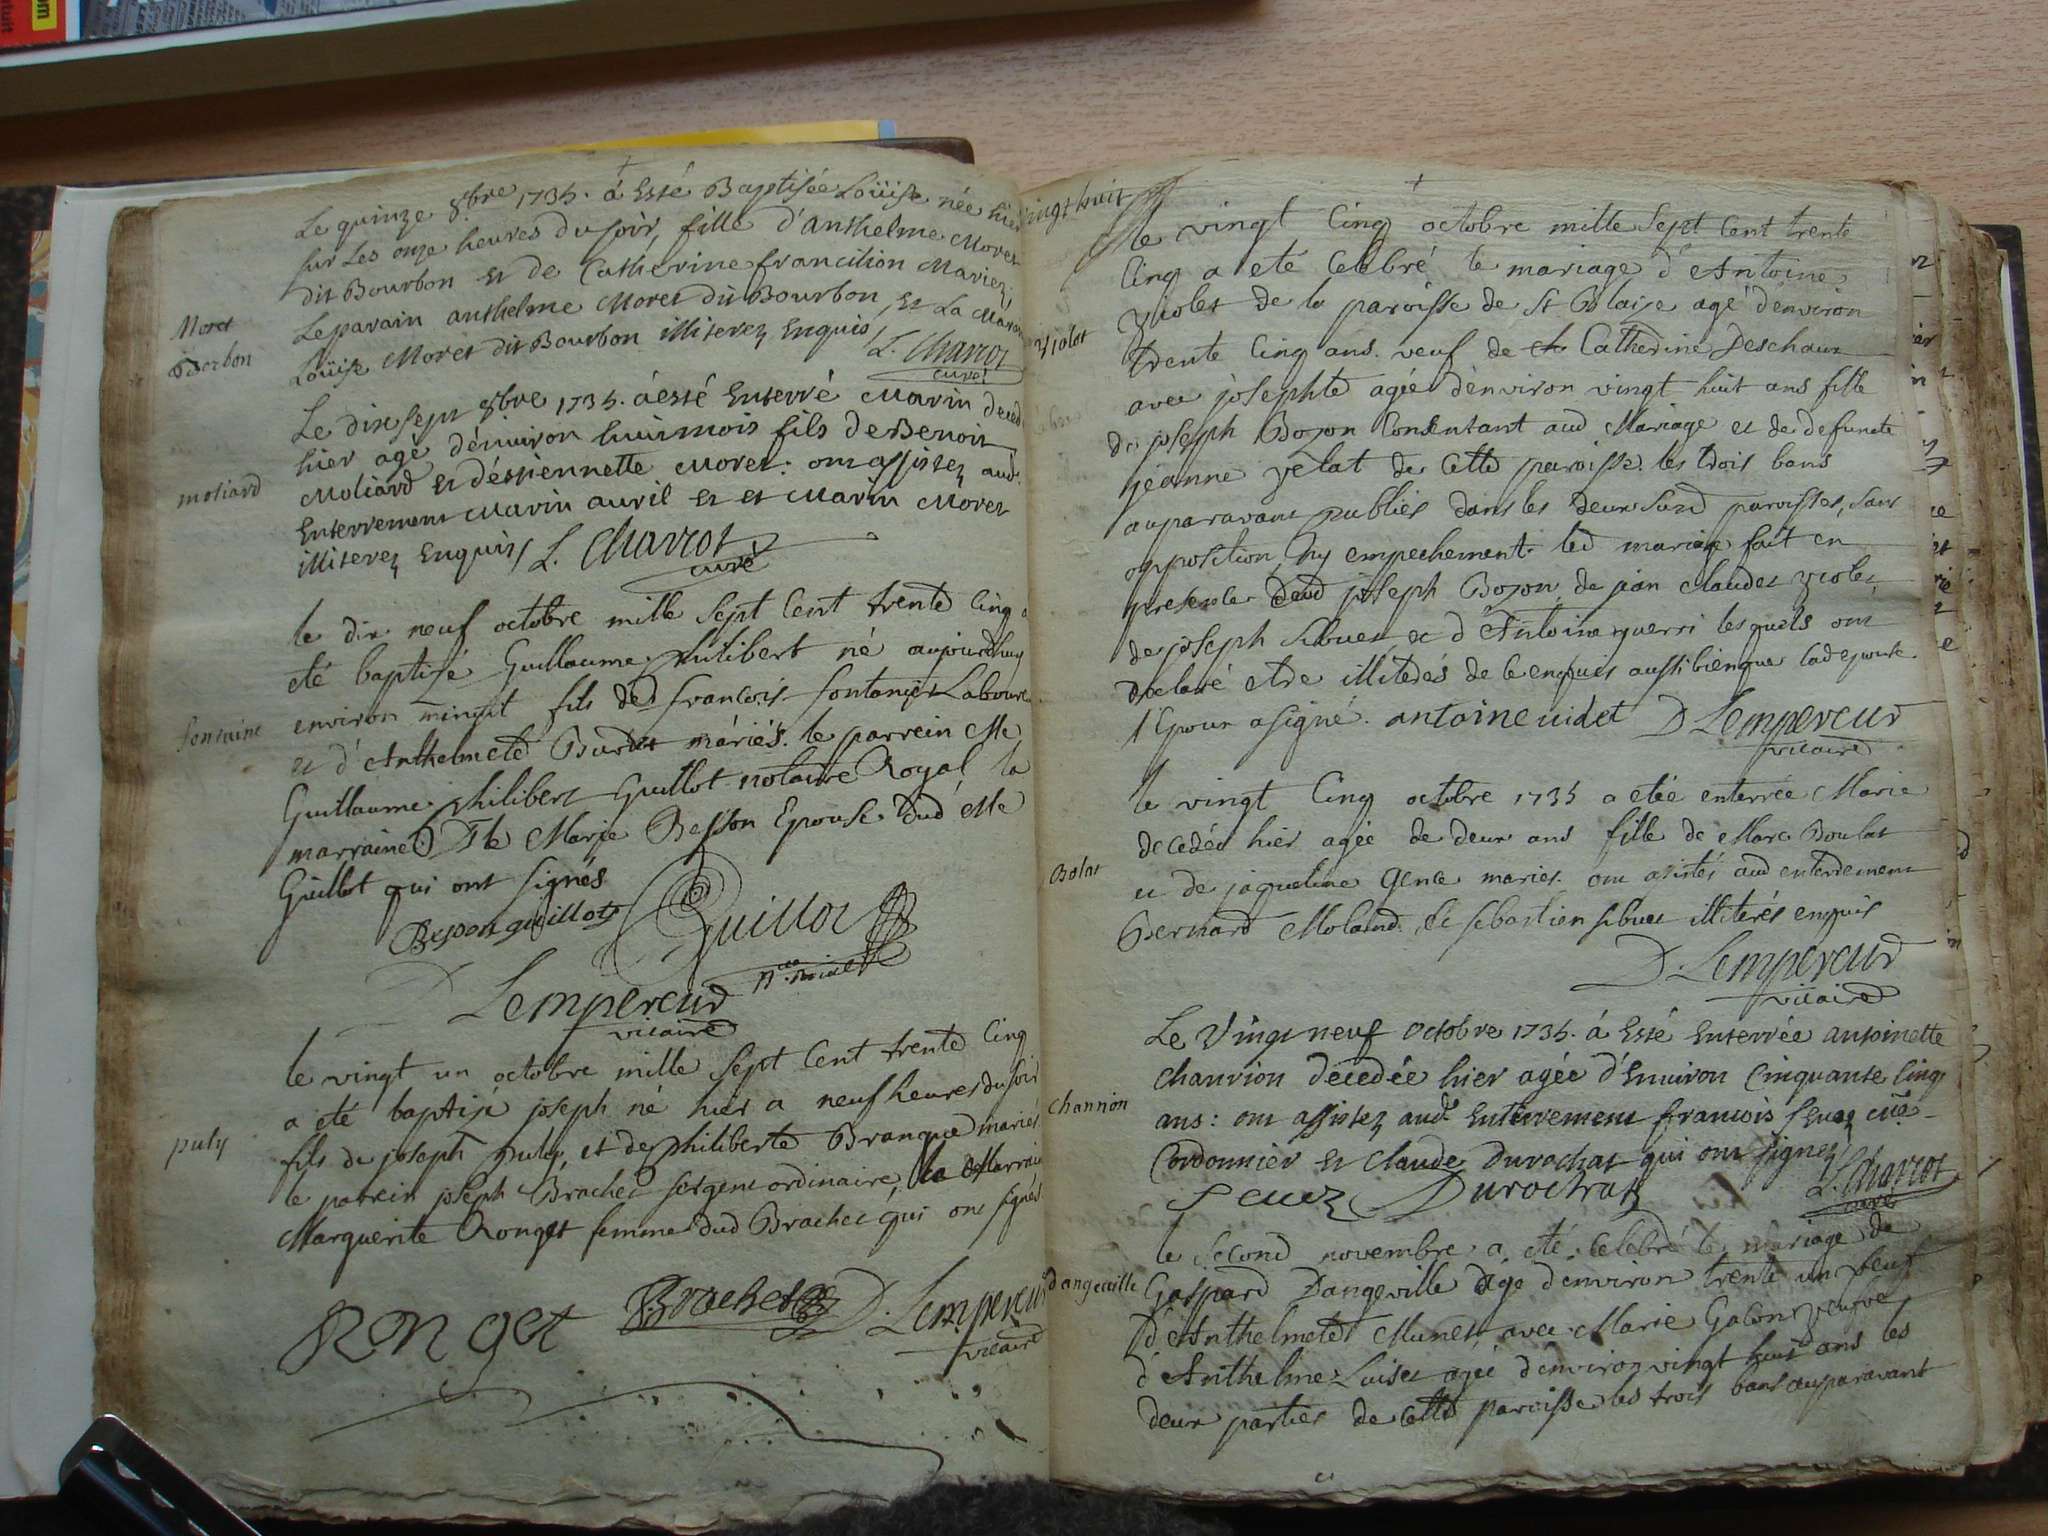 Le quinze 8bre 1735. á Esté Baptisée Loüise née hier
sur Les onze heures du soir, fille d'anthelme Moret
dit Bourbon et de Catherine francilion Mariez;
Le parain anthelme Moret dit Bourbon, et La Marai
Loüise Moret dit Bourbon illiterez Enquis,
L. Charcot
curé
Moret
Borbon
Le dix sept 8bre 1735. á esté Enterré Marin deced
hier agé d'enuiron huit mois fils de Benoit
Moliard et d'estiennette Moret: ont assistez aud.
Enterrement Marin auril et et Marin Moret
illiterez Enquis, L. Charcot
curé
moliard
le dix neuf octobre mille sept Cent trente Cinq a
eté baptizé Guillaume philibert né aujourdhuy
environ minuit fils de françois fontanier Laboure
et d'Anthelmete Burdet máriés. le parrein Me
Guillaume philibert Guillot notaire Royal la
marraine Dlle Marie Besson Epouse dud Me
Guillot qui ont signés
fontaine
Besson guillot Guillot
D Lempereur
vicaire
le vingt un octobre mille sept Cent trente Cinq
a eté baptisé joseph né hier a neuf heures du soir
fils de joseph puly, et de philiberte Branque mariés
le parein joseph Brachet sergent ordinaire, la Marrain
Marguerite Ronget femme dud Brachet qui ont signés.
puly
Ronget Brachet D. Lempereur
vicaire
vingt huit
le vingt Cinq octobre mille Sept Cent trente
Cinq a eté Celebré le mariage d'Antoine
violet de la paroisse de St Blaise agé d'environ
trente Cinq ans. veuf de Catherine Deschaux
avec josephte agée d'environ vingt huit ans fille
de joseph Bozon Consentant aud Mariage et de defuncte
jeanne velat de Cette paroisse. les trois bans
auparavant publiés dans les deux susd paroisses, sans
opposition, ny empechement. led mariage fait en
presence dud joseph Bozon, de jean Claude violet,
de joseph sibuet et d'Antoine querri lesquels ont
declaré etre illiterés de ce enquis aussi bien que lad epouse.
l'Epoux a signé. antoine uidet D Lempereur
vicaire
violet
le vingt Cinq octobre 1735 a etée enterrée Marie
decedée hier agée de deux ans fille de Marc Boulat
et de jaqueline Gence mariés. ont asistés aud enterrement
Bernard Moland et sebastien sibuet illiterés enquis
D. Lempereur
vicaire
Bolat
Le Vingt neuf octobre 1735. á Esté Enterrée antoinette
chanrion décedée hier agée d'Enuiron Cinquante Cinq
ans: ont assistez aud. Enterrement francois seuez
Cordonnier et claude Durochat qui ont signez
seuez Durochat L. Charcot
curé
chanrion
le second novembre a eté Celebré le mariage de
Gaspard Dangeville agé d'environ trente un veuf
d'Anthelmete Munet, avec Marie Galon veufve
d'Anthelme Luiset agée d'environ vingt huit ans les
deux parties de cette paroisse les trois bans auparavant
dangeuille